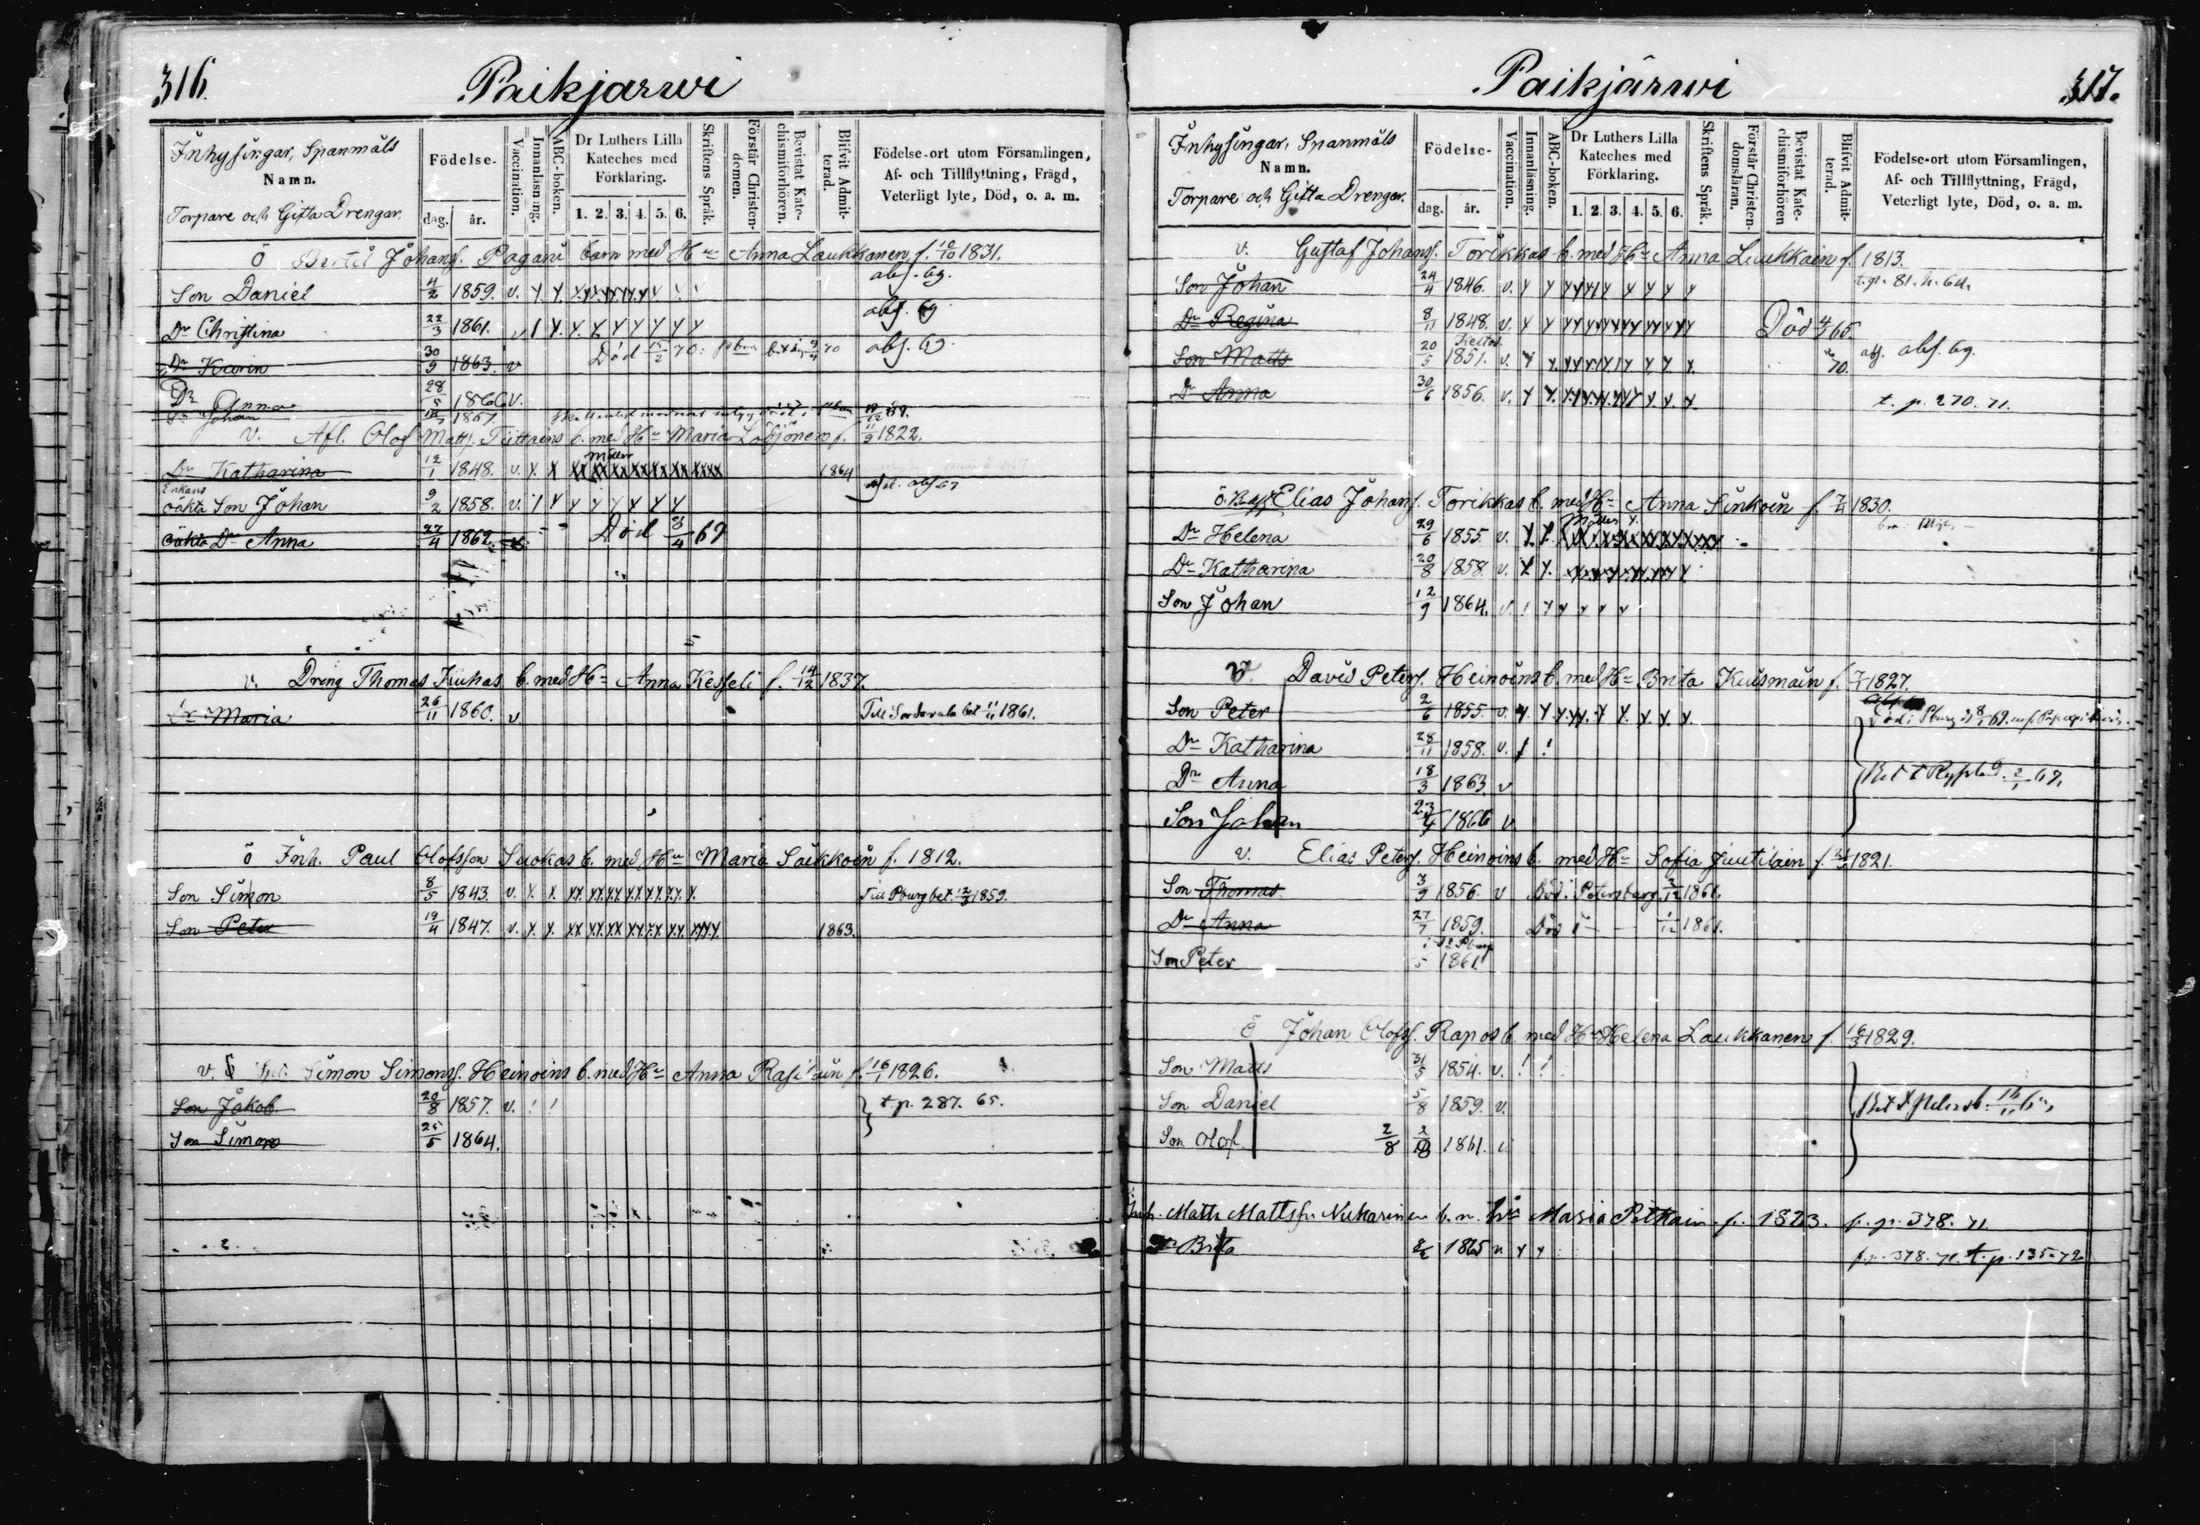 316.
Paikjärwi
Inhysingar, Spanmåls
Namn.
Torpare och Gifta Drengar.
Födelse-
dag. år.
Vaccination.
Innanläsning.
ABC-boken.
Dr Luthers Lilla Kateches med Förklaring.
1. 2. 3. 4. 5. 6.
Skriftens Språk.
Förstår Christendomen.
Bevistat Katechismiförhören.
Blifvit Admitterad.
Födelse-ort utom Församlingen, Af- och Tillflyttning, Frägd, Veterligt lyte, Död, o. a. m.
ö Bertil Johansf. Pagani barn med Hu Anna Laukkanen f. 10/10 1831.
Son Daniel 4/2 1859. v. abs. 69.
Dr Christina 22/3 1861. v abs. 69
Dr Karin 30/9 1863. v Död 15/2 70 abs. 69.
Dr Anna 28/5 1860 v.
Johan 1867
v. Afl. Olof Mattf. Tiittains b. med Hu Maria f. 11/9 1822.
Dr Katharina 12/1 1848. v. 1864
Enkans oäkta Son Johan 9/2 1858. v.
oäkta Dr Anna 27/4 1862. Död 3/4 69
v. Dreng Thomas Kuhas b. med Hu Anna Kesseli f. 14/12 1837.
Dr Maria 26/11 1860. v Till Sordavala bet 11/11 1861.
ö Inh. Paul Olofsson Suokas b. med Hu Maria Säkkoin f. 1812.
Son Simon 8/5 1843. v. Till Pburg bet. 12/3 1859.
Son Peter 19/4 1847. v. 1863.
v. Simon Simonsf. Heinoins b. med Hu Anna Rasilain f. 16/1 1826.
Son Jakob 20/8 1857. v. t.p. 287. 65.
Son Simon 25/5 1864.
Paikjärwi
317.
Inhysingar, Spanmåls
Namn.
Torpare och Gifta Drengar.
Födelse-
dag. år.
Vaccination.
Innanläsning.
ABC-boken.
Dr Luthers Lilla Kateches med Förklaring.
1. 2. 3. 4. 5. 6.
Skriftens Språk.
Förstår Christendomsläran.
Bevistat Katechismiförhören
Blifvit Admitterad.
Födelse-ort utom Församlingen, Af- och Tillflyttning, Frägd, Veterligt lyte, Död, o. a. m.
v. Gustaf Johansf. Torikkas b. med Hu Anna Liukkain f. 1813.
Son Johan 24/4 1846. v. t.p. 81.
Dr Regina 8/11 1848. v. Död 4/1 65.
Son Matts 20/5 1851. v. 70. abs. 69
Dr Anna 30/6 1856. v. t. p. 270. 71.
ö Elias Johansf. Torikkas b. med Hu Anna Sinkoin f. 7/4 1830.
Dr Helena 29/6 1855 v.
Dr Katharina 20/8 1858. v.
Son Johan 12/9 1864. v.
v. David Petersf. Heinoins b. med Hu Brita Kuismain f. 7/7 1827.
Son Peter 2/6 1855. v. Död i Pburg 8/1 69.
Dr Katharina 28/11 1858. v.
Dr Anna 18/3 1863. v
Son Johan 23/4 1866 v
v. Elias Petersf. Heinoins b. med Hu Sofia Juutilain f. 1821.
Son Thomas 3/9 1856. v Död i Petersburg 3/12 1861.
Dr Anna 27/7 1859. Död i 1/12 1861.
Son Peter 5 1861
ö Johan Olofsf. Rapos b. med Hu Helena Laukkanen f. 16/3 1829.
Son Matts 31/5 1854. v.
Son Daniel 5/8 1859. v.
Son Olof 2/8 1861. v
Matts Mattsson Nukarinen b. m. Hu Maria Pitkain f. 1823. f. p. 378. 71.
Dr Brita 1865 v f.p. 378. 71. t. p. 135. 72